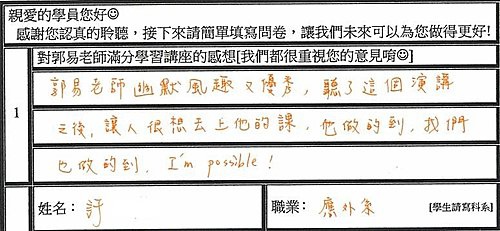 親愛的學員您好☺
感謝您認真的聆聽，接下來請簡單填寫問卷，讓我們未來可以為您做得更好!
對郭易老師滿分學習講座的感想[我們都很重視您的意見唷☺]
1
郭易老師幽默風趣又優秀，聽了這個演講
之後，讓人很想去上他的課，他做的到，我們
也做的到，I'm possible!
姓名：許
職業：應外系
[學生請寫科系]